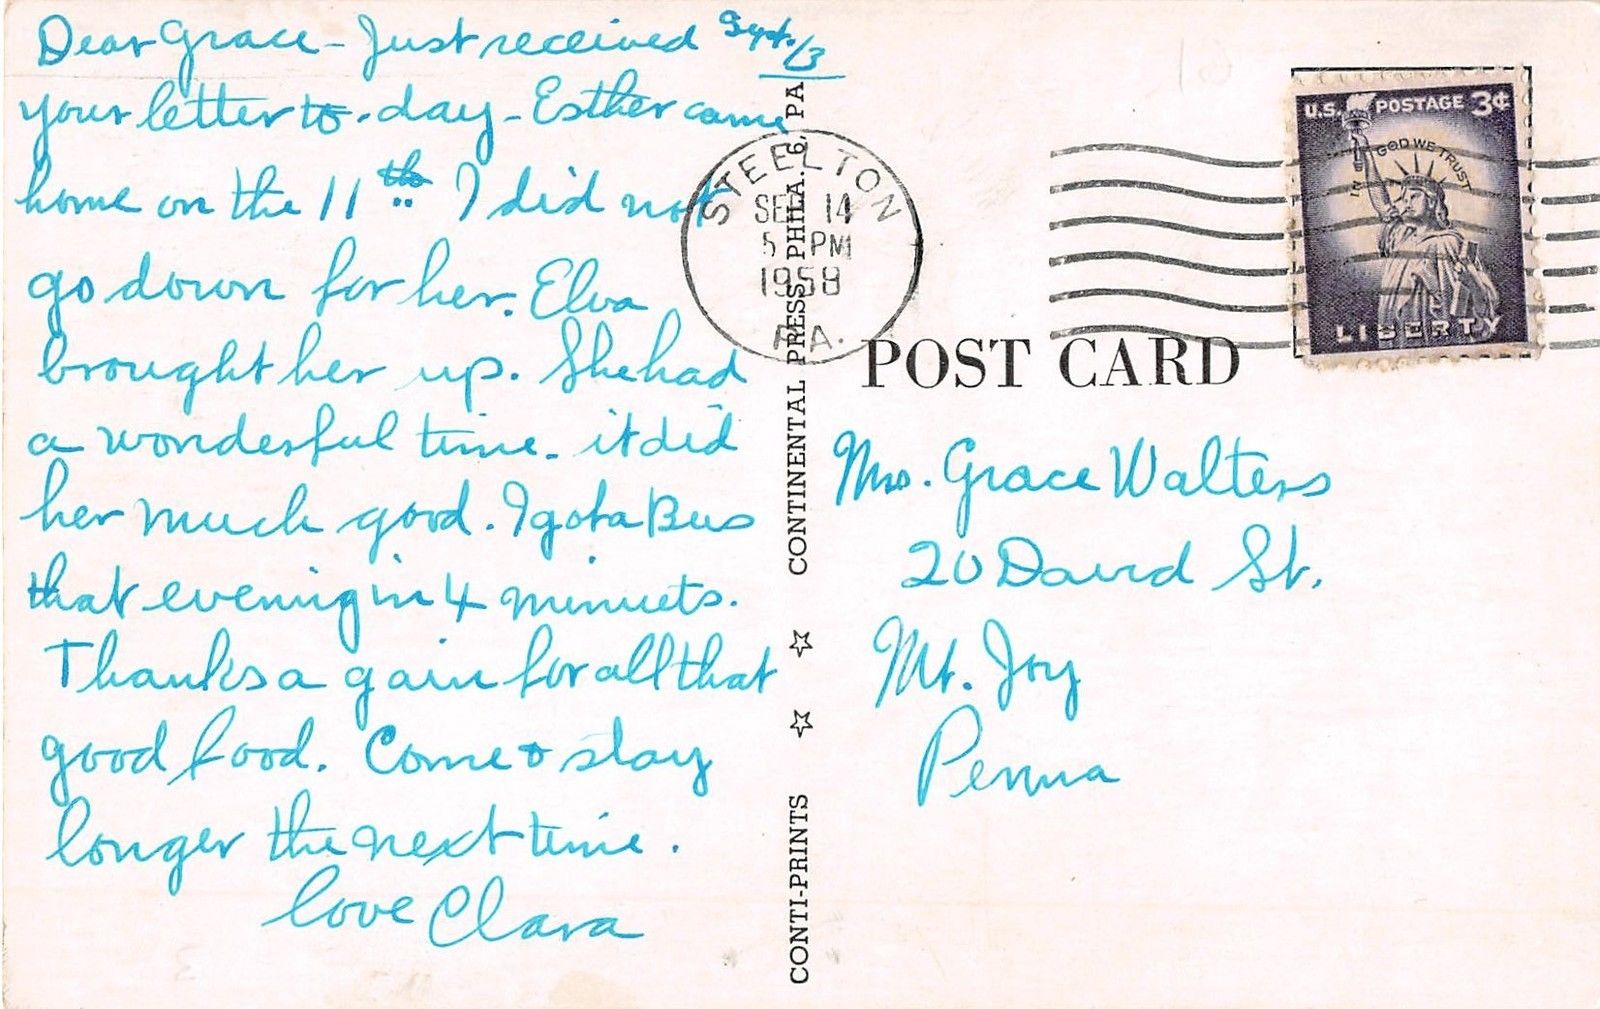 Sept. 13
Dear Grace - Just received
your letter to-day - Esther came
home on the 11th I did not
go down for her. Elva
brought her up. She had
a wonderful time. it did
her much good. I got a Bus
that evening in 4 minuets.
Thanks a gain for all that
good food. Come & stay
longer the next time.
Love Clara
CONTI-PRINTS ☆ ☆ CONTINENTAL PRESS, PHILA. 6, PA
STEELTON
SEP 14
5 PM
1958
PA.
U.S. POSTAGE 3¢
IN GOD WE TRUST
LIBERTY
POST CARD
Mrs. Grace Walters
20 David St.
Mt. Joy
Penna